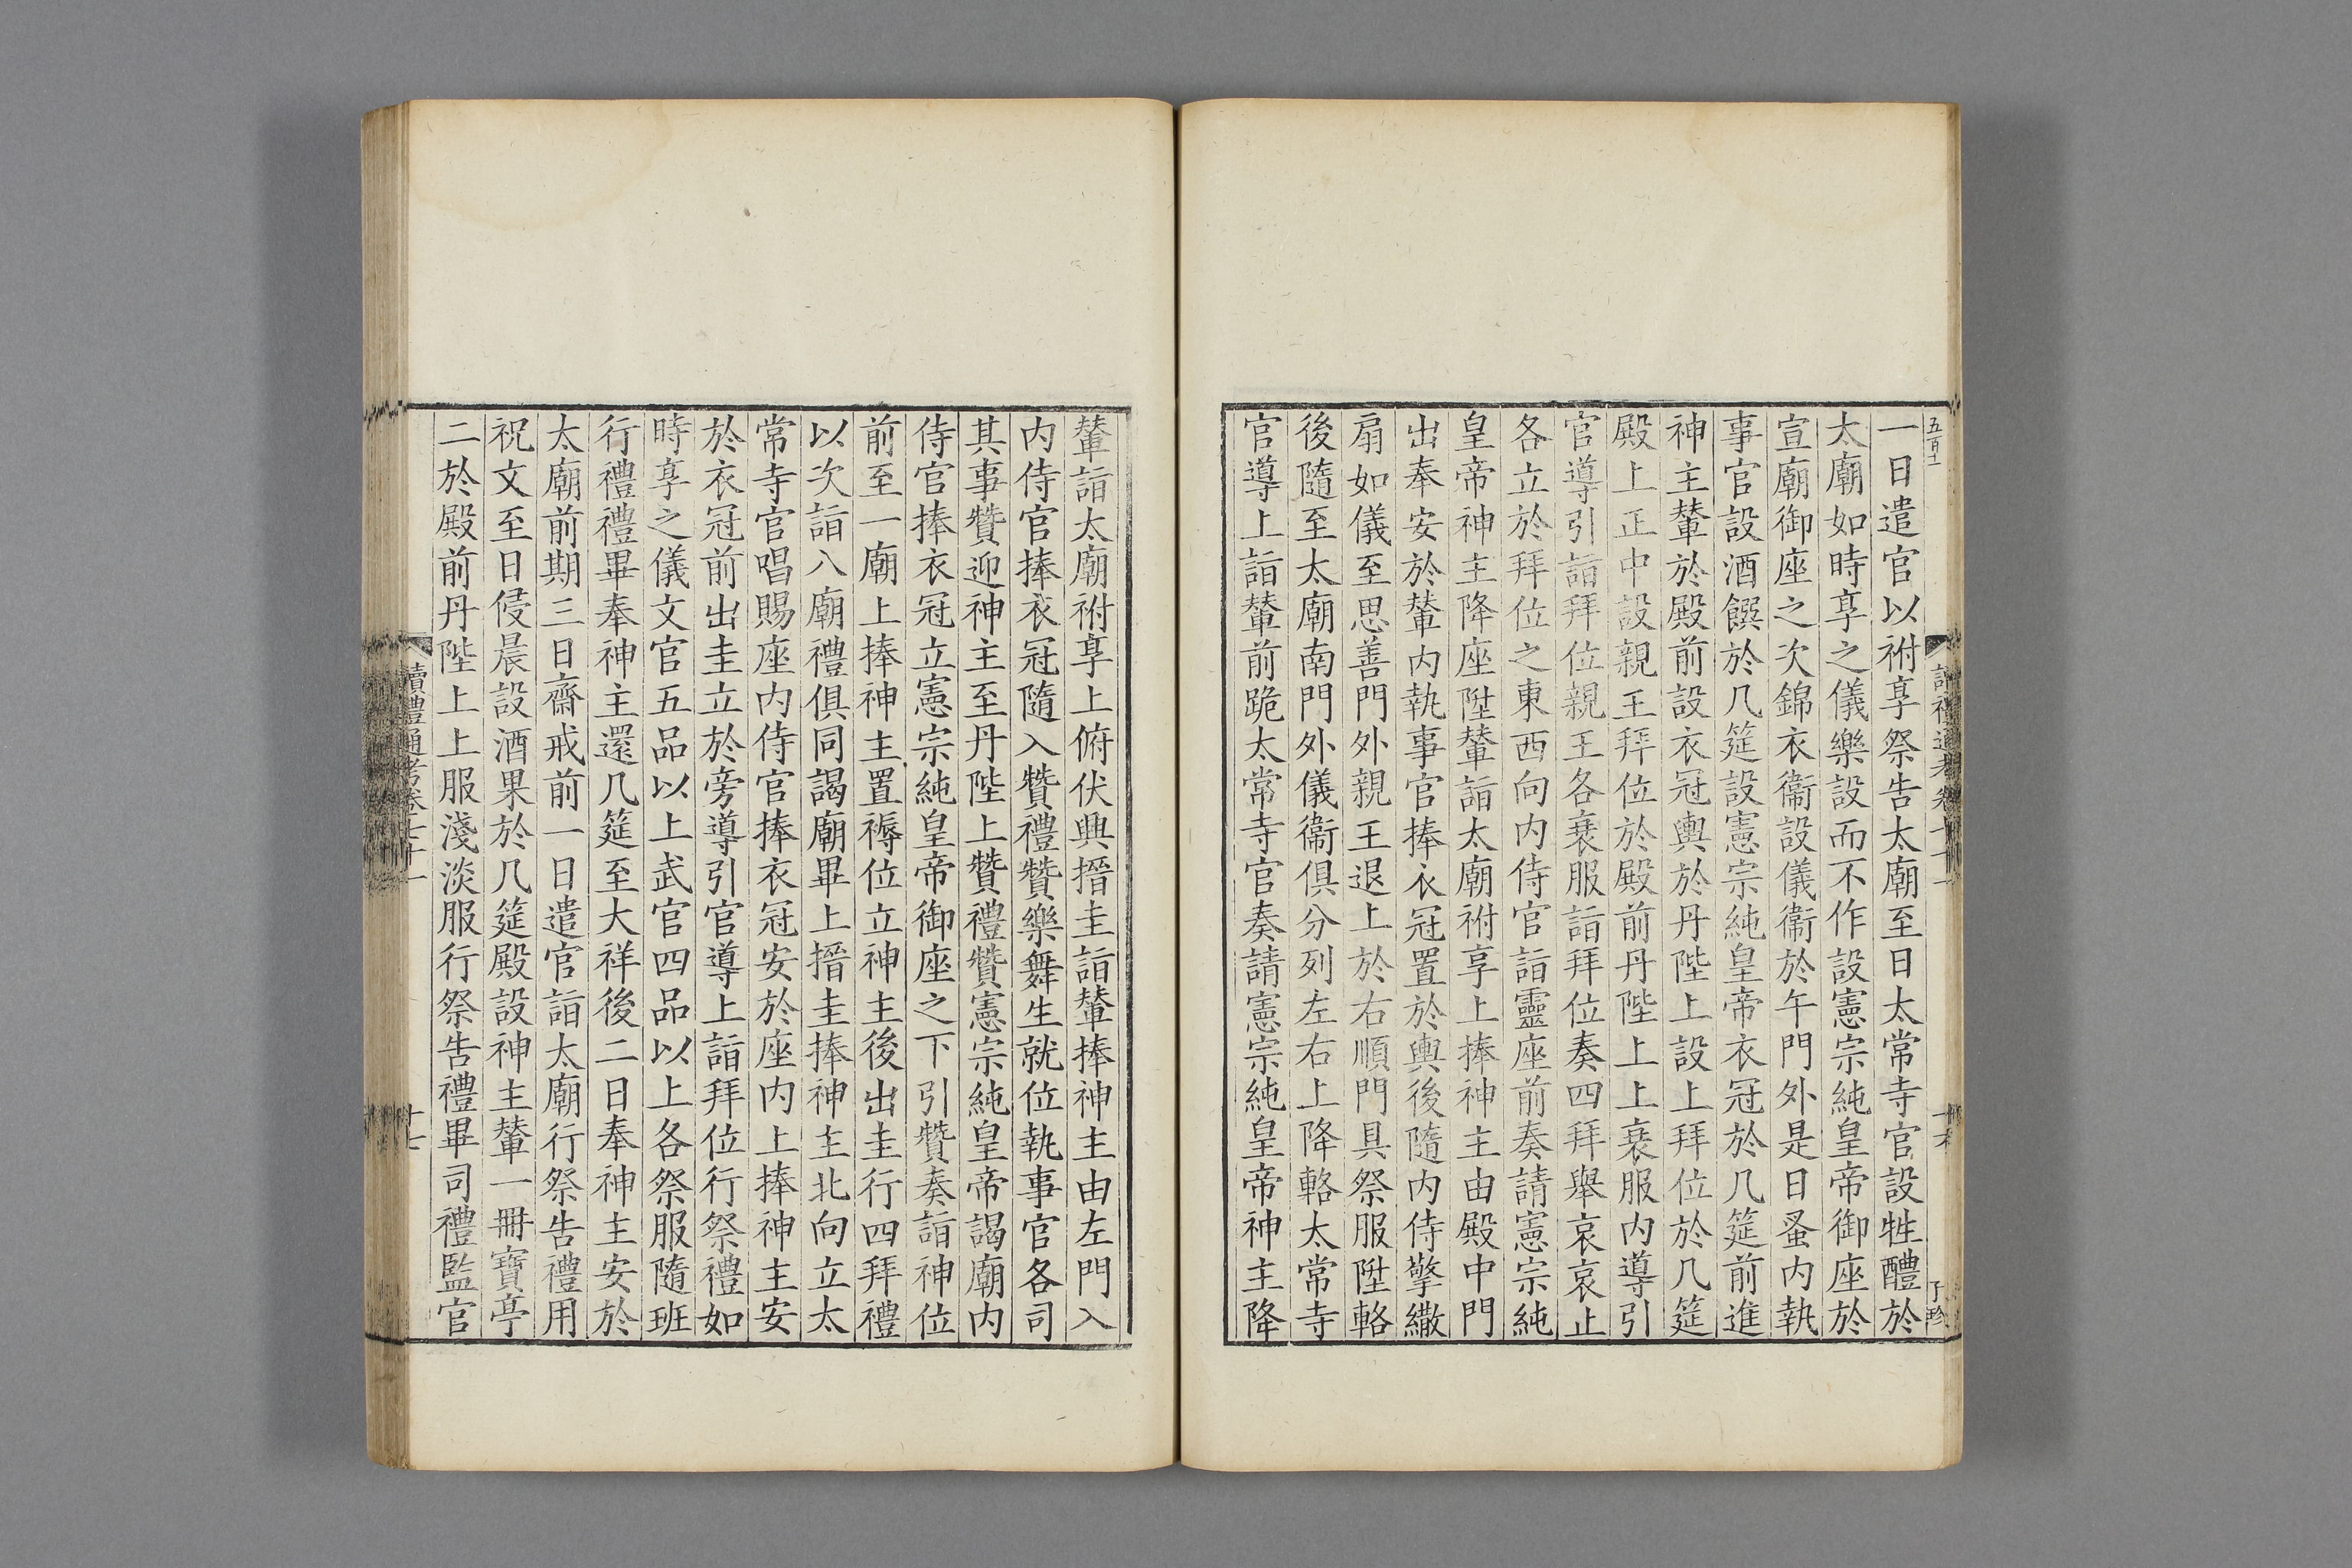 一日遣官以祔享祭告太廟至日太常寺官設牲醴於
太廟如時享之儀樂設而不作設憲宗純皇帝御座於
宣廟御座之次錦衣衞設儀衞於午門外是日蚤內執
事官設酒饌於几筵設憲宗純皇帝衣冠於几筵前進
神主輦於殿前設衣冠輿於丹陛上設上拜位於几筵
殿上正中設親王拜位於殿前丹陛上上衰服內導引
官導引詣拜位親王各衰服詣拜位奏四拜舉哀哀止
各立於拜位之東西向內侍官詣靈座前奏請憲宗純
皇帝神主降座陞輦詣太廟祔享上捧神主由殿中門
出奉安於輦內執事官捧衣冠置於輿後隨內侍擎繖
扇如儀至思善門外親王退上於右順門具祭服陞輅
後隨至太廟南門外儀衞俱分列左右上降輅太常寺
官導上詣輦前跪太常寺官奏請憲宗純皇帝神主降
輦詣太廟祔享上俯伏興搢圭詣輦捧神主由左門入
內侍官捧衣冠隨入贊禮贊樂舞生就位執事官各司
其事贊迎神主至丹陛上贊禮贊憲宗純皇帝謁廟內
侍官捧衣冠立憲宗純皇帝御座之下引贊奏詣神位
前至一廟上捧神主置褥位立神主後出圭行四拜禮
以次詣八廟禮俱同謁廟畢上搢圭捧神主北向立太
常寺官唱賜座內侍官捧衣冠安於座內上捧神主安
於衣冠前出圭立於旁導引官導上詣拜位行祭禮如
時享之儀文官五品以上武官四品以上各祭服隨班
行禮禮畢奉神主還几筵至大祥後二日奉神主安於
太廟前期三日齋戒前一日遣官詣太廟行祭告禮用
祝文至日侵晨設酒果於几筵殿設神主輦一冊寶亭
二於殿前丹陛上上服淺淡服行祭告禮畢司禮監官
讀禮通考卷七十一
十七